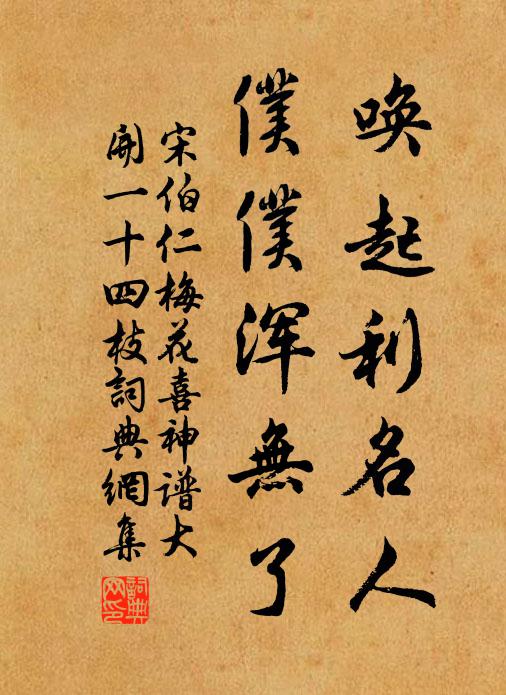 唤起利名人
僕僕浑無了
宋伯仁梅花喜神谱大
開一十四枝詞典網集
詞典網印